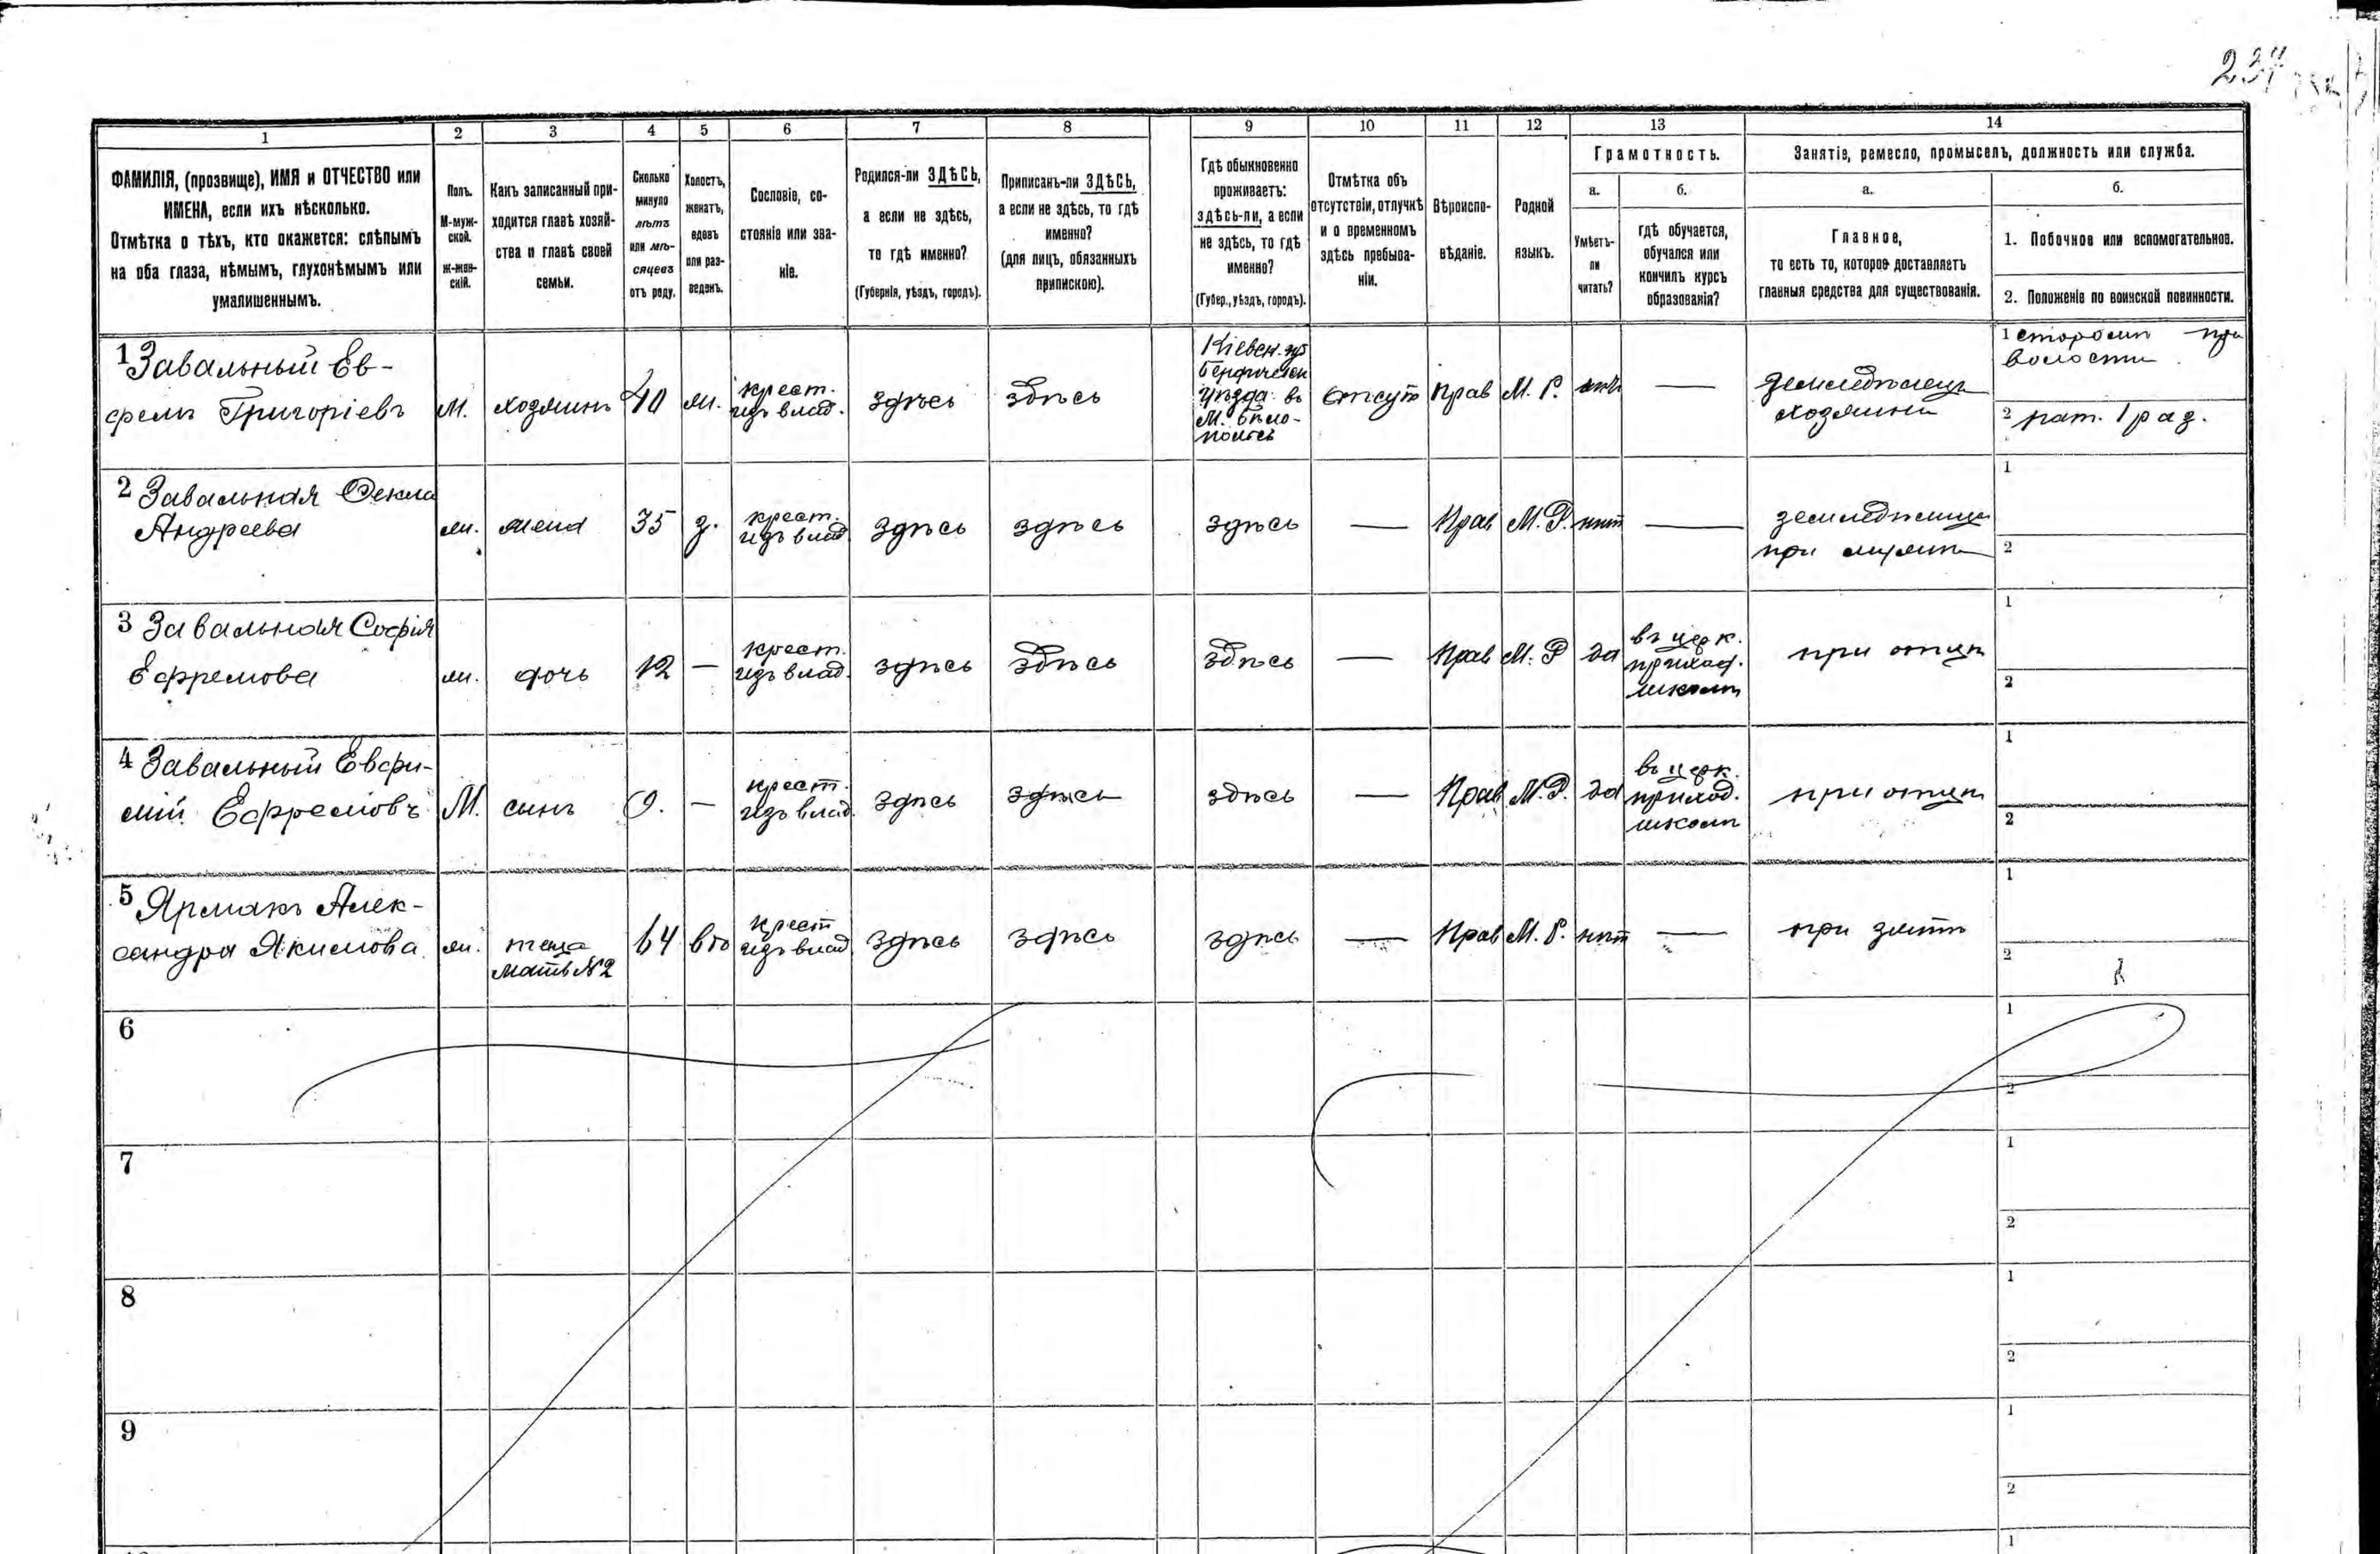 237
1
2
3
4
5
6
7
8
9
10
11
12
13
14
ФАМИЛІЯ, (прозвище), ИМЯ и ОТЧЕСТВО или
ИМЕНА, если ихъ нѣсколько.
Отмѣтка о тѣхъ, кто окажется: слѣпымъ
на оба глаза, нѣмымъ, глухонѣмымъ или
умалишеннымъ.
Полъ.
М-муж-
ской.
ж-жен-
скій.
Какъ записанный при-
ходится главѣ хозяй-
ства и главѣ своей
семьи.
Сколько
минуло
лѣтъ
или мѣ-
сяцевъ
отъ роду.
Холостъ,
женатъ,
вдовъ
или раз-
веденъ.
Сословіе, со-
стояніе или зва-
ніе.
Родился-ли ЗДѢСЬ,
а если не здѣсь,
то гдѣ именно?
(Губернія, уѣздъ, городъ).
Приписанъ-ли ЗДѢСЬ,
а если не здѣсь, то гдѣ
именно?
(для лицъ, обязанныхъ
припискою).
Гдѣ обыкновенно
проживаетъ:
здѣсь-ли, а если
не здѣсь, то гдѣ
именно?
(Губер., уѣздъ, городъ).
Отмѣтка объ
отсутствіи, отлучкѣ
и о временномъ
здѣсь пребыва-
ніи.
Вѣроиспо-
вѣданіе.
Родной
языкъ.
Грамотность.
а.
Умѣетъ-
ли
читать?
б.
гдѣ обучается,
обучался или
кончилъ курсъ
образованія?
Занятіе, ремесло, промыселъ, должность или служба.
а.
Главное,
то есть то, которое доставляетъ
главныя средства для существованія.
б.
1. Побочное или вспомогательное.
2. Положеніе по воинской повинности.
1 Завальный Еф-
ремъ Григоріевъ
М.
хозяинъ
40
ж.
крест.
изъ влад.
здѣсь
здѣсь
Кіевск. губ
Бердичевск
уѣзда въ
М. Бѣло-
польѣ
отсут
Прав
М. Р.
—
земледѣлецъ
хозяинъ
1 сторожъ при
волости
2 рат. 1 раз.
2 Завальная Фекла
Андреева
ж.
жена
35
з.
крест.
изъ влад
здѣсь
здѣсь
здѣсь
—
Прав
М. Р.
нѣт
—
при мужѣ
1
2
3 Завальная Софія
Ефремова
ж.
дочь
12
—
крест.
изъ влад.
здѣсь
здѣсь
здѣсь
—
Прав
М. Р
да
въ церк.
приход.
школѣ
при отцѣ
1
2
4 Завальный Евфи-
мій Ефремовъ
М.
сынъ
9.
—
крест.
изъ влад.
здѣсь
здѣсь
здѣсь
—
Прав
М. Р.
да
въ церк.
приход.
школѣ
при отцѣ
1
2
5 Ярмакъ Алек-
сандра Якимова
ж.
теща
мать №2
64
вдо
крест
изъ влад
здѣсь
здѣсь
здѣсь
—
Прав
М. Р.
нѣт
—
при зятѣ
1
2
6
1
2
7
1
2
8
1
2
9
1
2
1